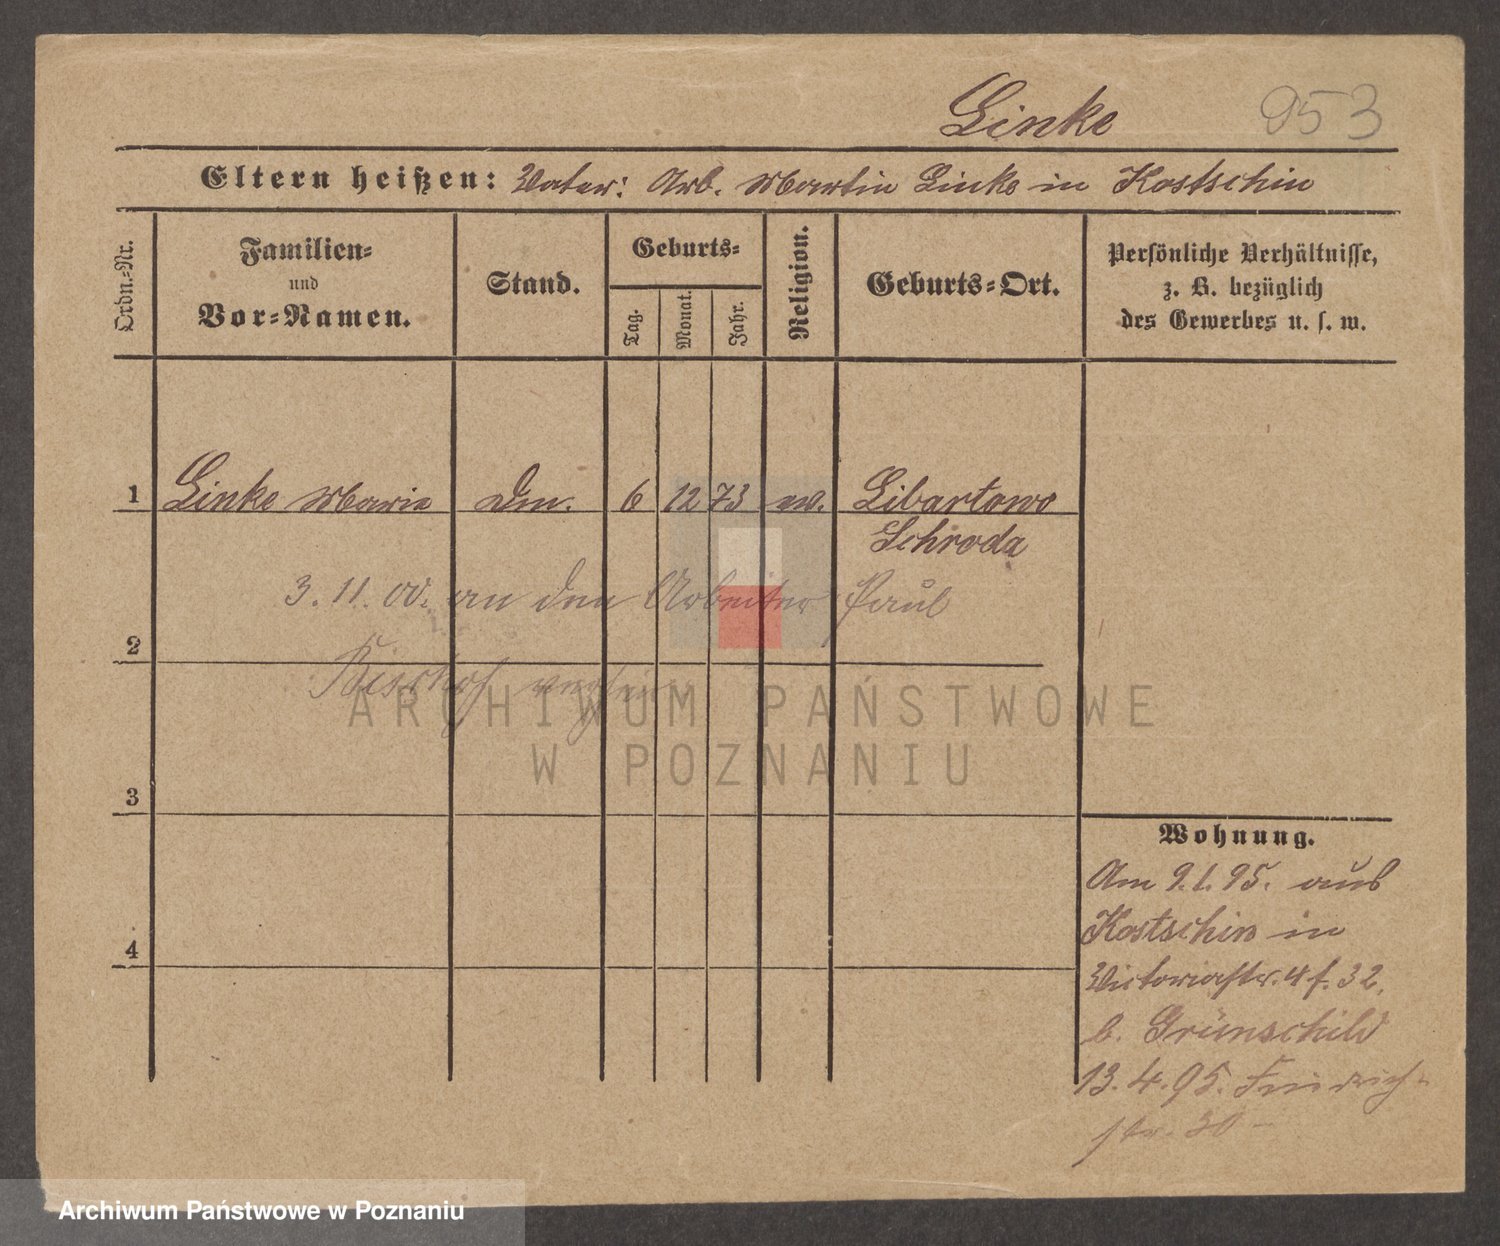 Linke 953
Eltern heißen: Vater: Arb. Martin Linke in Kostschin
Ordn.-Nr.
Familien-
und
Vor-Namen.
Stand.
Geburts-
Tag.
Monat.
Jahr.
Religion.
Geburts-Ort.
Persönliche Verhältnisse,
z. B. bezüglich
des Gewerbes u. s. w.
1 Linke Maria 6 12 73 ev. Libartowo
Schroda
3. 11. 00. an den Arbeiter Paul
2
Bischof
ARCHIWUM PAŃSTWOWE
W POZNANIU
3
Wohnung.
Am 9.1.95. aus
Kostschin in
4
Victoriastr. 4 f. 32.
b. Grünschild
13. 4. 95. Friedrich-
str. 30 -
Archiwum Państwowe w Poznaniu